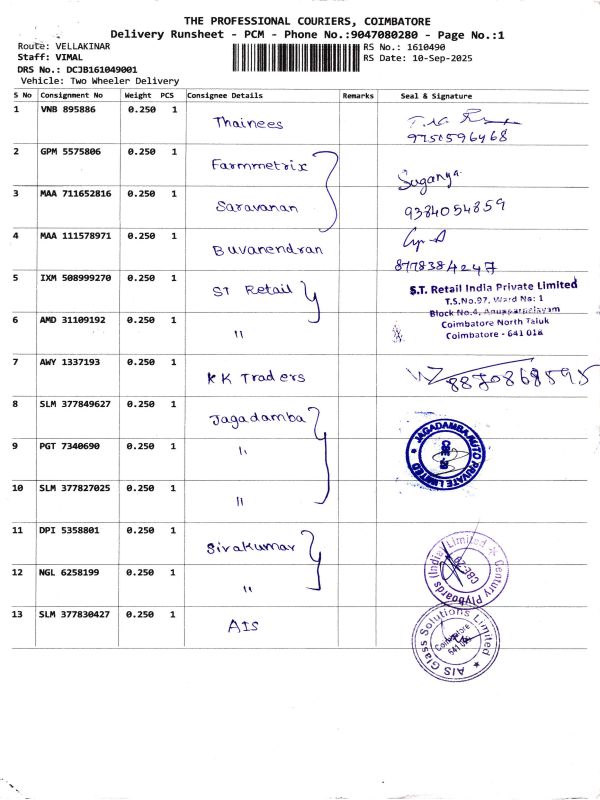 THE PROFESSIONAL COURIERS, COIMBATORE
Delivery Runsheet - PCM - Phone No.:9047080280 - Page No.:1
Route: VELLAKINAR
RS No.: 1610490
Staff: VIMAL
RS Date: 10-Sep-2025
DRS No.: DCJB161049001
Vehicle: Two Wheeler Delivery
S No Consignment No Weight PCS Consignee Details Remarks Seal & Signature
1 VNB 895886 0.250 1 Thainees
9750596468
2 GPM 5575806 0.250 1 Farmmetrix Suganya
3 MAA 711652816 0.250 1 Saravanan 9384054859
4 MAA 111578971 0.250 1 Buvanendran
8778384247
5 IXM 508999270 0.250 1 ST Retail
S.T. Retail India Private Limited
T.S.No.97, Ward No: 1
Block No.4, Anupparpalayam
Coimbatore North Taluk
Coimbatore - 641 018
6 AMD 31109192 0.250 1 "
7 AWY 1337193 0.250 1 KK Traders 8870868595
8 SLM 377849627 0.250 1 Jagadamba
JAGADAMBA AUTO PRIVATE LIMITED
9 PGT 7340690 0.250 1 "
10 SLM 377827025 0.250 1 "
11 DPI 5358801 0.250 1 Sivakumar
Century Plyboards (India) Limited
CBE-29
12 NGL 6258199 0.250 1 "
13 SLM 377830427 0.250 1 AIS
AIS Glass Solutions Limited
Coimbatore